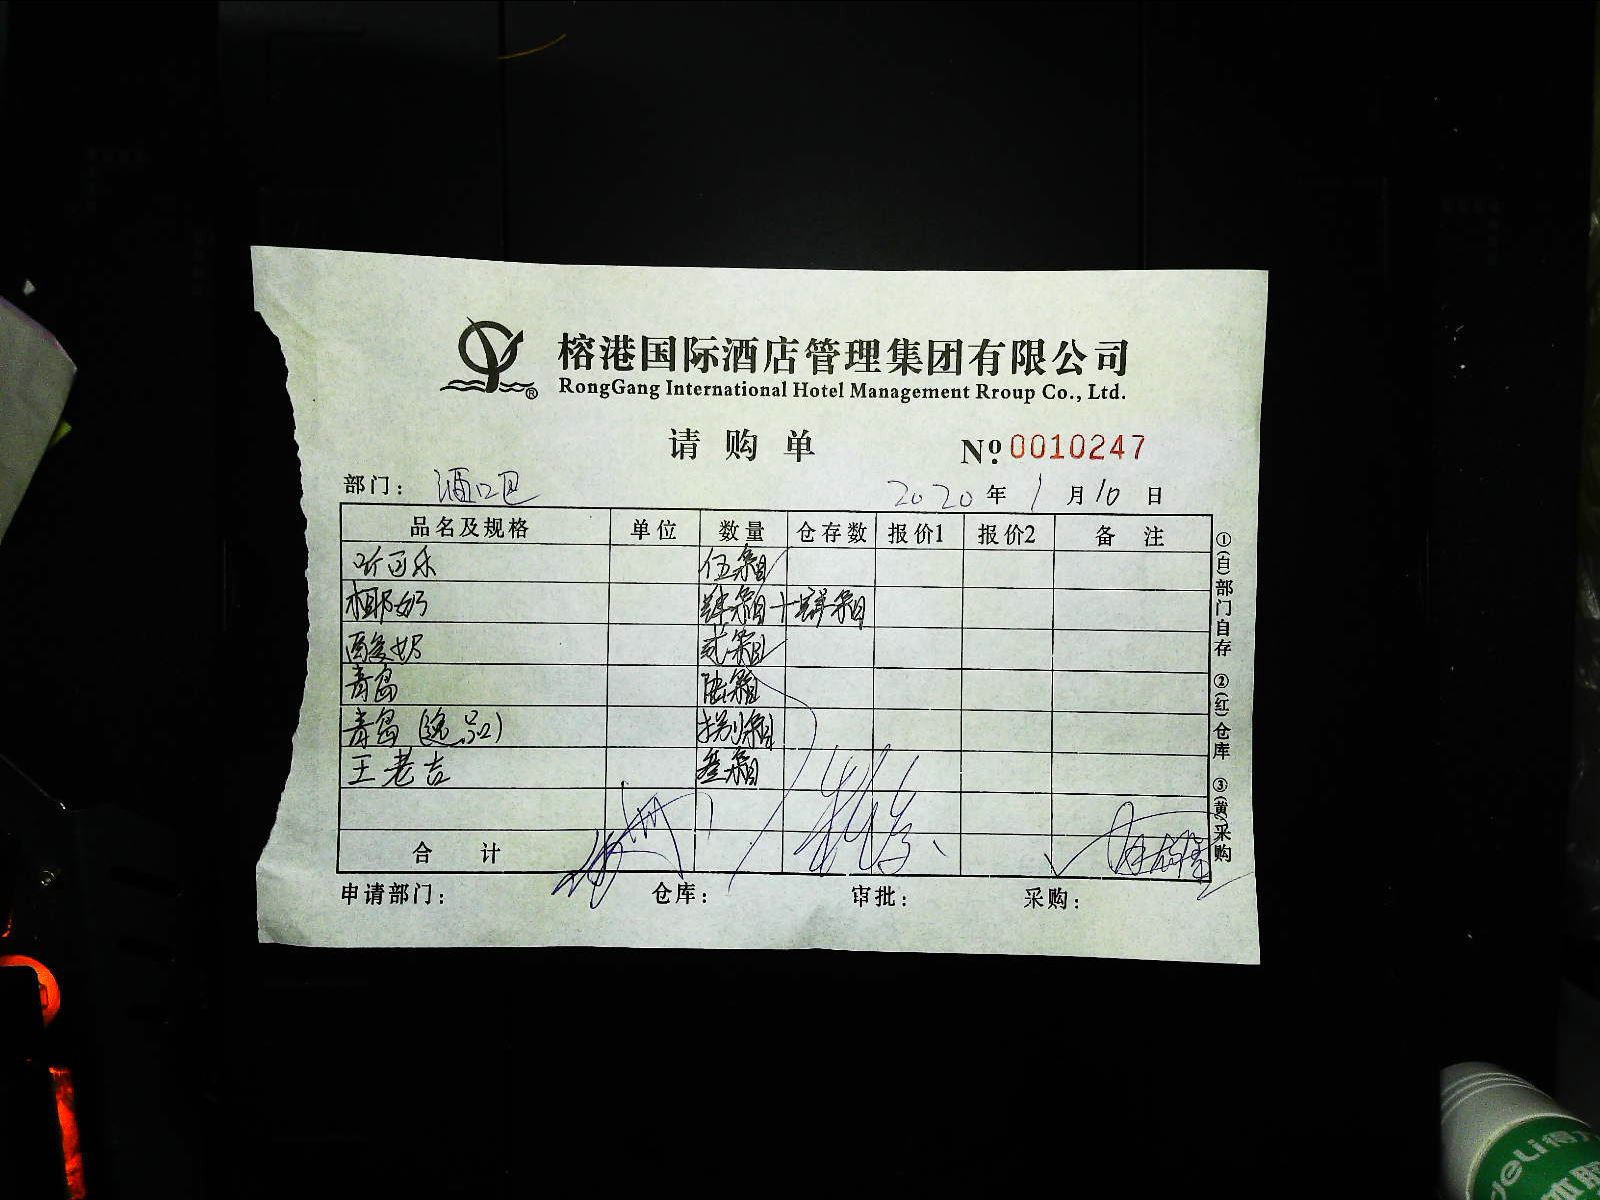 榕港国际酒店管理集团有限公司
RongGang International Hotel Management Rroup Co., Ltd.
请购单 No. 0010247
部门： 酒吧 2020年1月10日
品名及规格 单位 数量 仓存数 报价1 报价2 备注
听可乐 伍箱
椰奶 肆箱+肆箱
酸奶 贰箱
青岛 陆箱
青岛（逸品） 捌箱
王老吉 叁箱
合计
申请部门： 仓库： 审批： 采购：
①(白)部门自存 ②(红)仓库 ③(黄)采购
deli得力